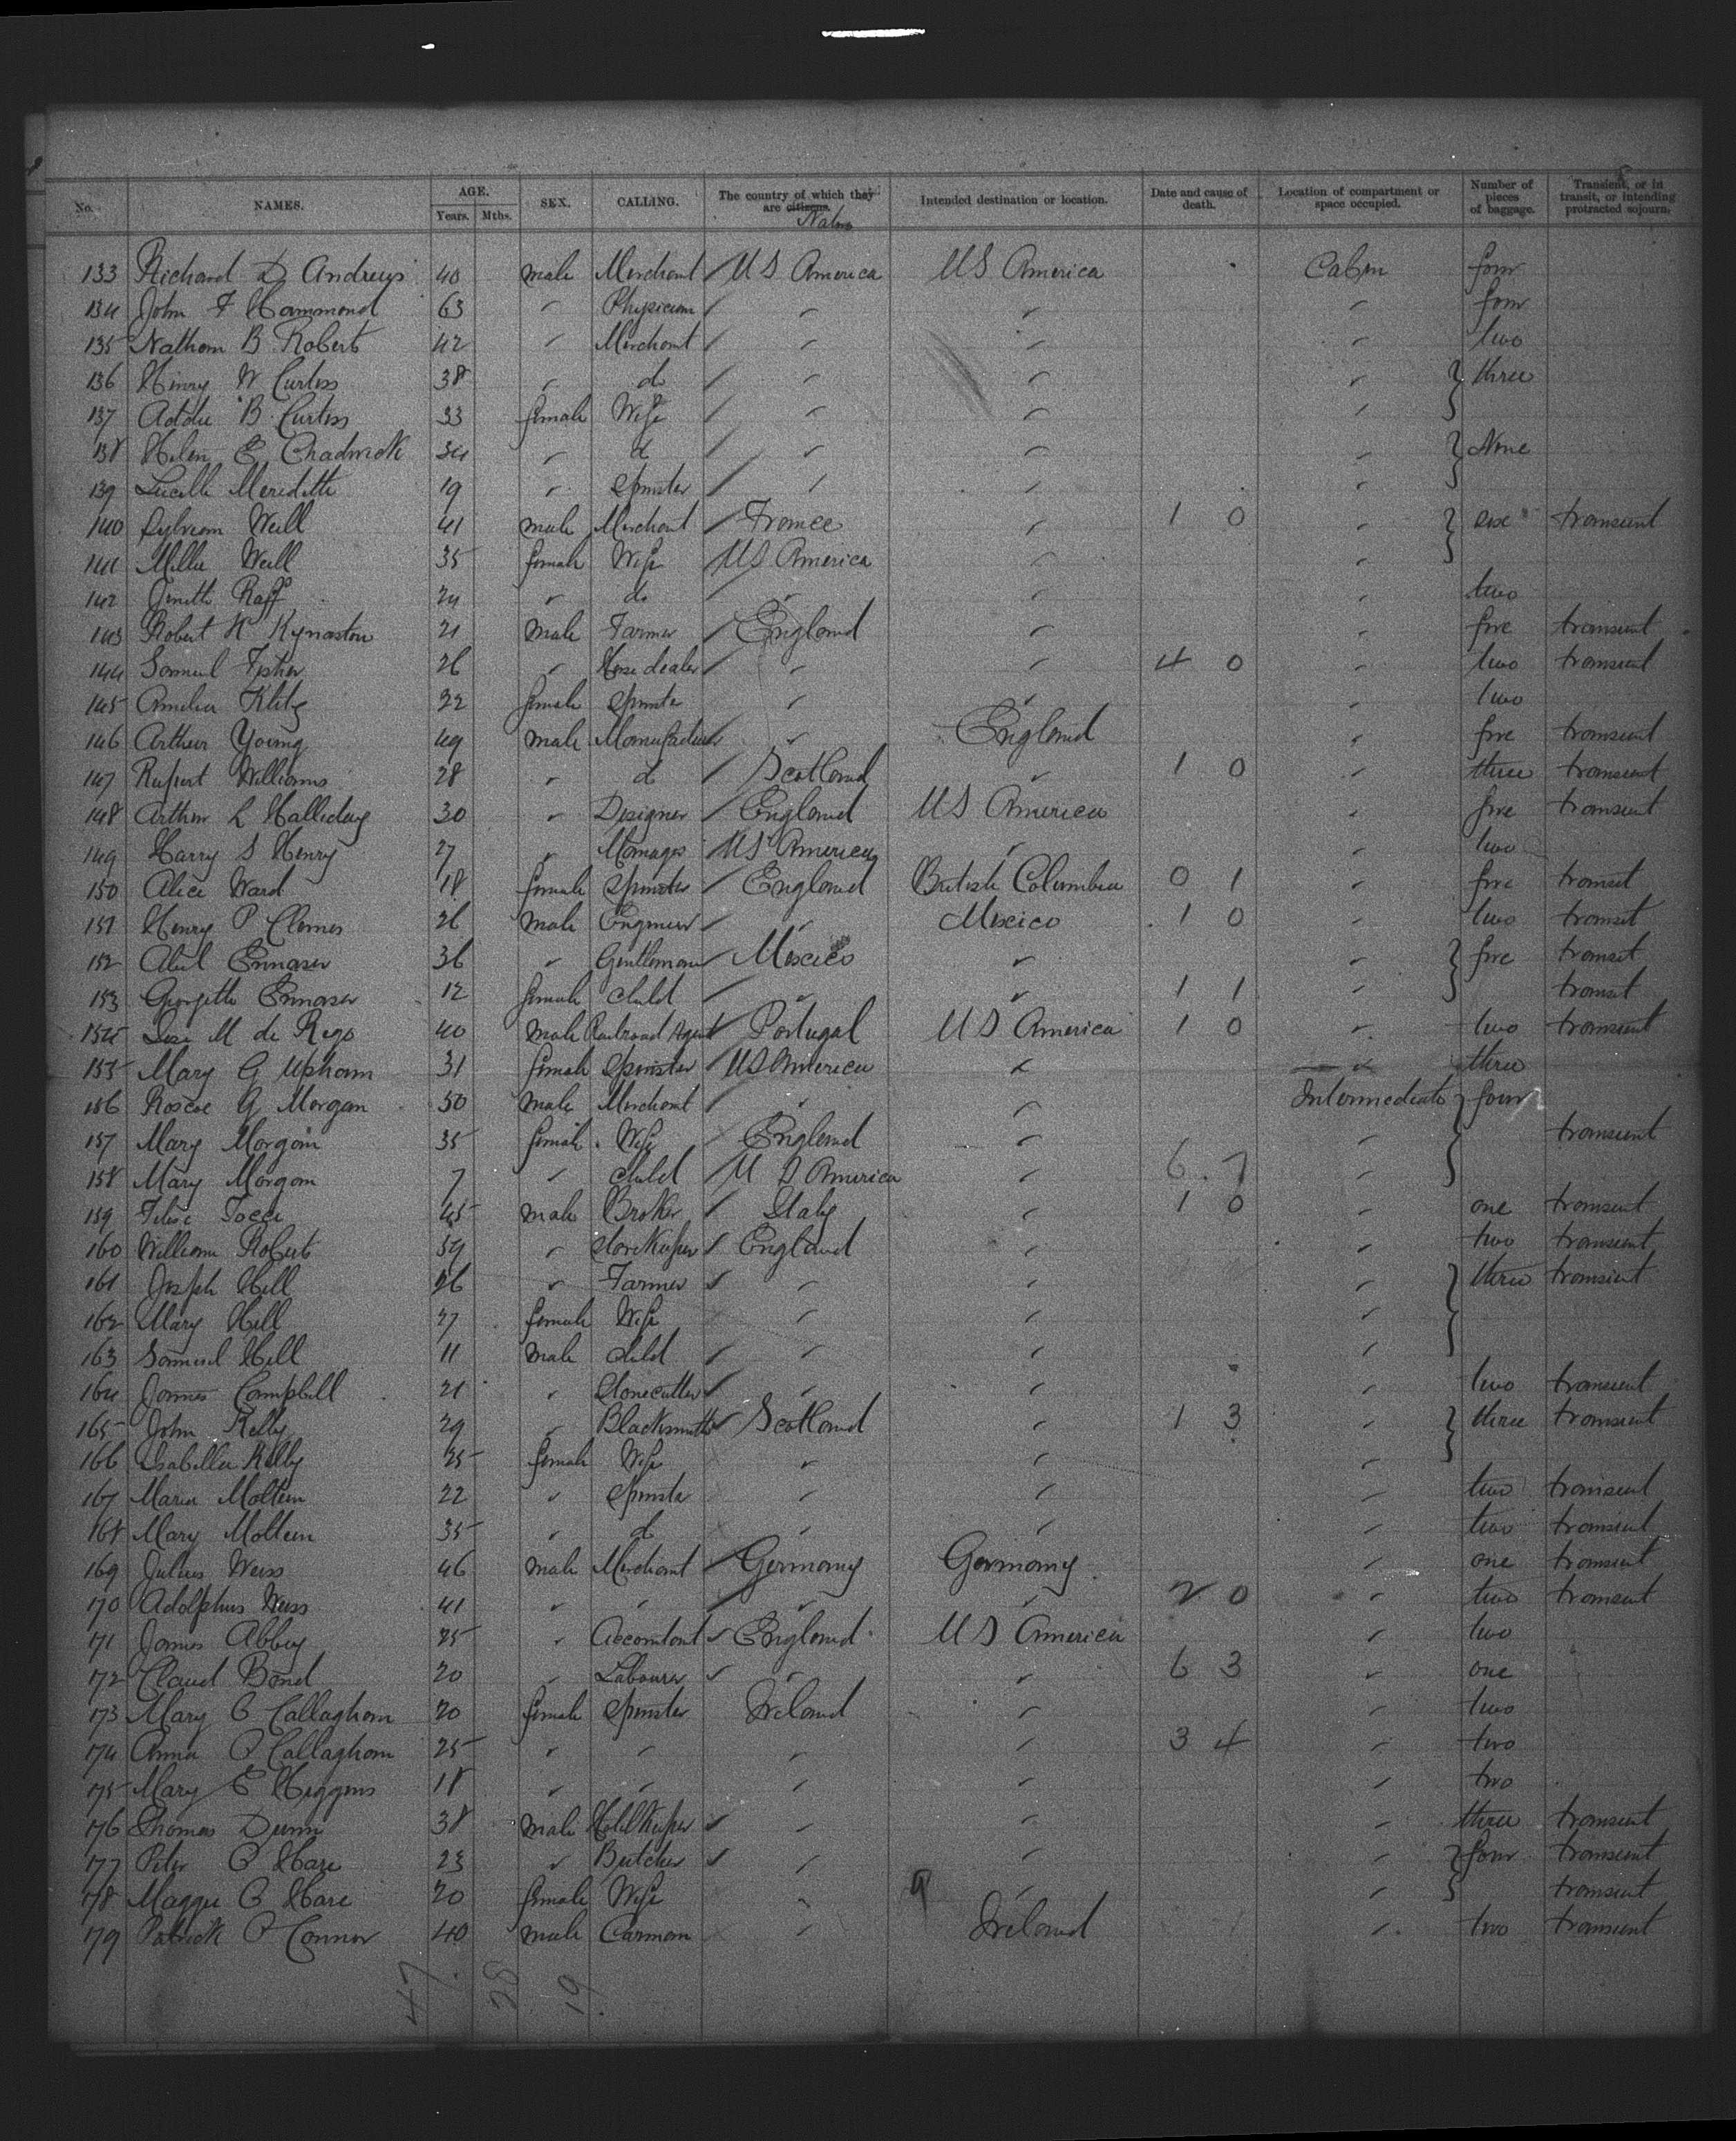 No. NAMES. AGE. Years. Mths. SEX. CALLING. The country of which they are citizens. Natives Intended destination or location. Date and cause of death. Location of compartment or space occupied. Number of pieces of baggage. Transient, or in transit, or intending protracted sojourn.
133 Richard D Andrews 40 male Merchant / US America US America Cabin four
134 John F Hammond 63 " Physician / " " " four
135 Nathan B Roberts 42 " Merchant / " " " two
136 Henry W Curtiss 38 " do / " " " } three
137 Addie B Curtiss 33 female Wife / " " "
138 Helen E Chadwick 34 " d / " " " } None
139 Lucille Meredith 19 " Spinster / " " "
140 Sylvain Weill 41 male Merchant / France " 1 0 " } six transient
141 Millie Weill 35 female Wife / US America "
142 Jinette Raff 24 " do / " " " two
143 Robert K Kynaston 21 male Farmer / England " " five transient
144 Samuel Fisher 26 " Horse dealer / " " 4 0 " two transient
145 Amelia Klitz 22 female Spinster " " " two
146 Arthur Young 49 male Manufacturer / " England " five transient
147 Rupert Williams 28 " d / Scotland " 1 0 " three transient
148 Arthur L Halliday 30 " Designer / England US America " five transient
149 Harry S Henry 27 " Manager / US America " " two
150 Alice Ward 18 female Spinster / England British Columbia 0 1 " five transit
151 Henry P Clemes 26 male Engineer / " Mexico 1 0 " two transit
152 Abel 36 " Gentleman / Mexico " " } five transit
153 Georgette 12 female child / " " 1 1 " transit
154 M de Rego 40 male Railroad Agent / Portugal US America 1 0 " two transient
155 Mary G Upham 31 female Spinster / US America " " three
156 Roscoe G Morgan 50 male Merchant / " " Intermediate } four
157 Mary Morgan 35 female Wife / England " " transient
158 Mary Morgan 7 " child / U S America " 6 7 "
159 Felise Tocci 45 male Broker / Italy " 1 0 " one transient
160 William Roberts 39 " Storekeeper / England " " two transient
161 Joseph Hill 26 " Farmer / " " " } three transient
162 Mary Hill 27 female Wife " " "
163 Samuel Hill 11 male child / " " "
164 James Campbell 21 " Stonecutter / " " " two transient
165 John Kelly 29 " Blacksmith / Scotland " 1 3 " } three transient
166 Isabella Kelly 25 female Wife " " "
167 Maria 22 " Spinster " " " two transient
168 Mary 35 " d " " " two transient
169 Julius Weiss 46 male Merchant / Germany Germany " one transient
170 Adolphus Weiss 41 " " / " " 2 0 " two transient
171 James Abbey 25 " Accountant / England US America " two
172 Claud Bond 20 " Labourer / " " 6 3 " one
173 Mary O Callaghan 20 female Spinster Ireland " " two
174 Anna O Callaghan 25 " " " " 3 4 " two
175 Mary E Higgins 18 " " " " " two
176 Thomas Dunn 38 male Hotelkeeper / " " " three transient
177 Peter O Hare 23 " Butcher / " " " } four transient
178 Maggie O Hare 20 female Wife " " " transient
179 Patrick O Connor 40 male Carman " Ireland " two transient
47 28 19